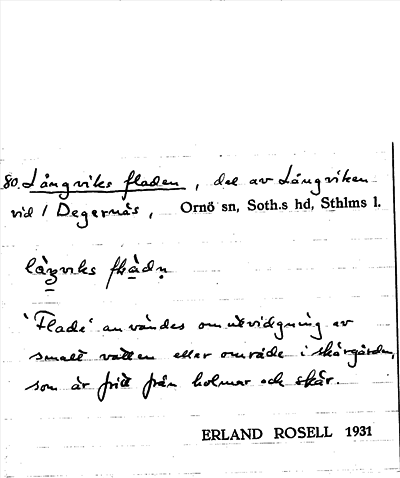 80. Långviks fladen, del av Långviken
vid 1 Degernäs, Ornö sn, Soth.s hd, Sthlms l.
'Flada' användes om utvidgning av
smalt vatten eller område i skärgården,
som är fritt från holmar och skär.
ERLAND ROSELL 1931